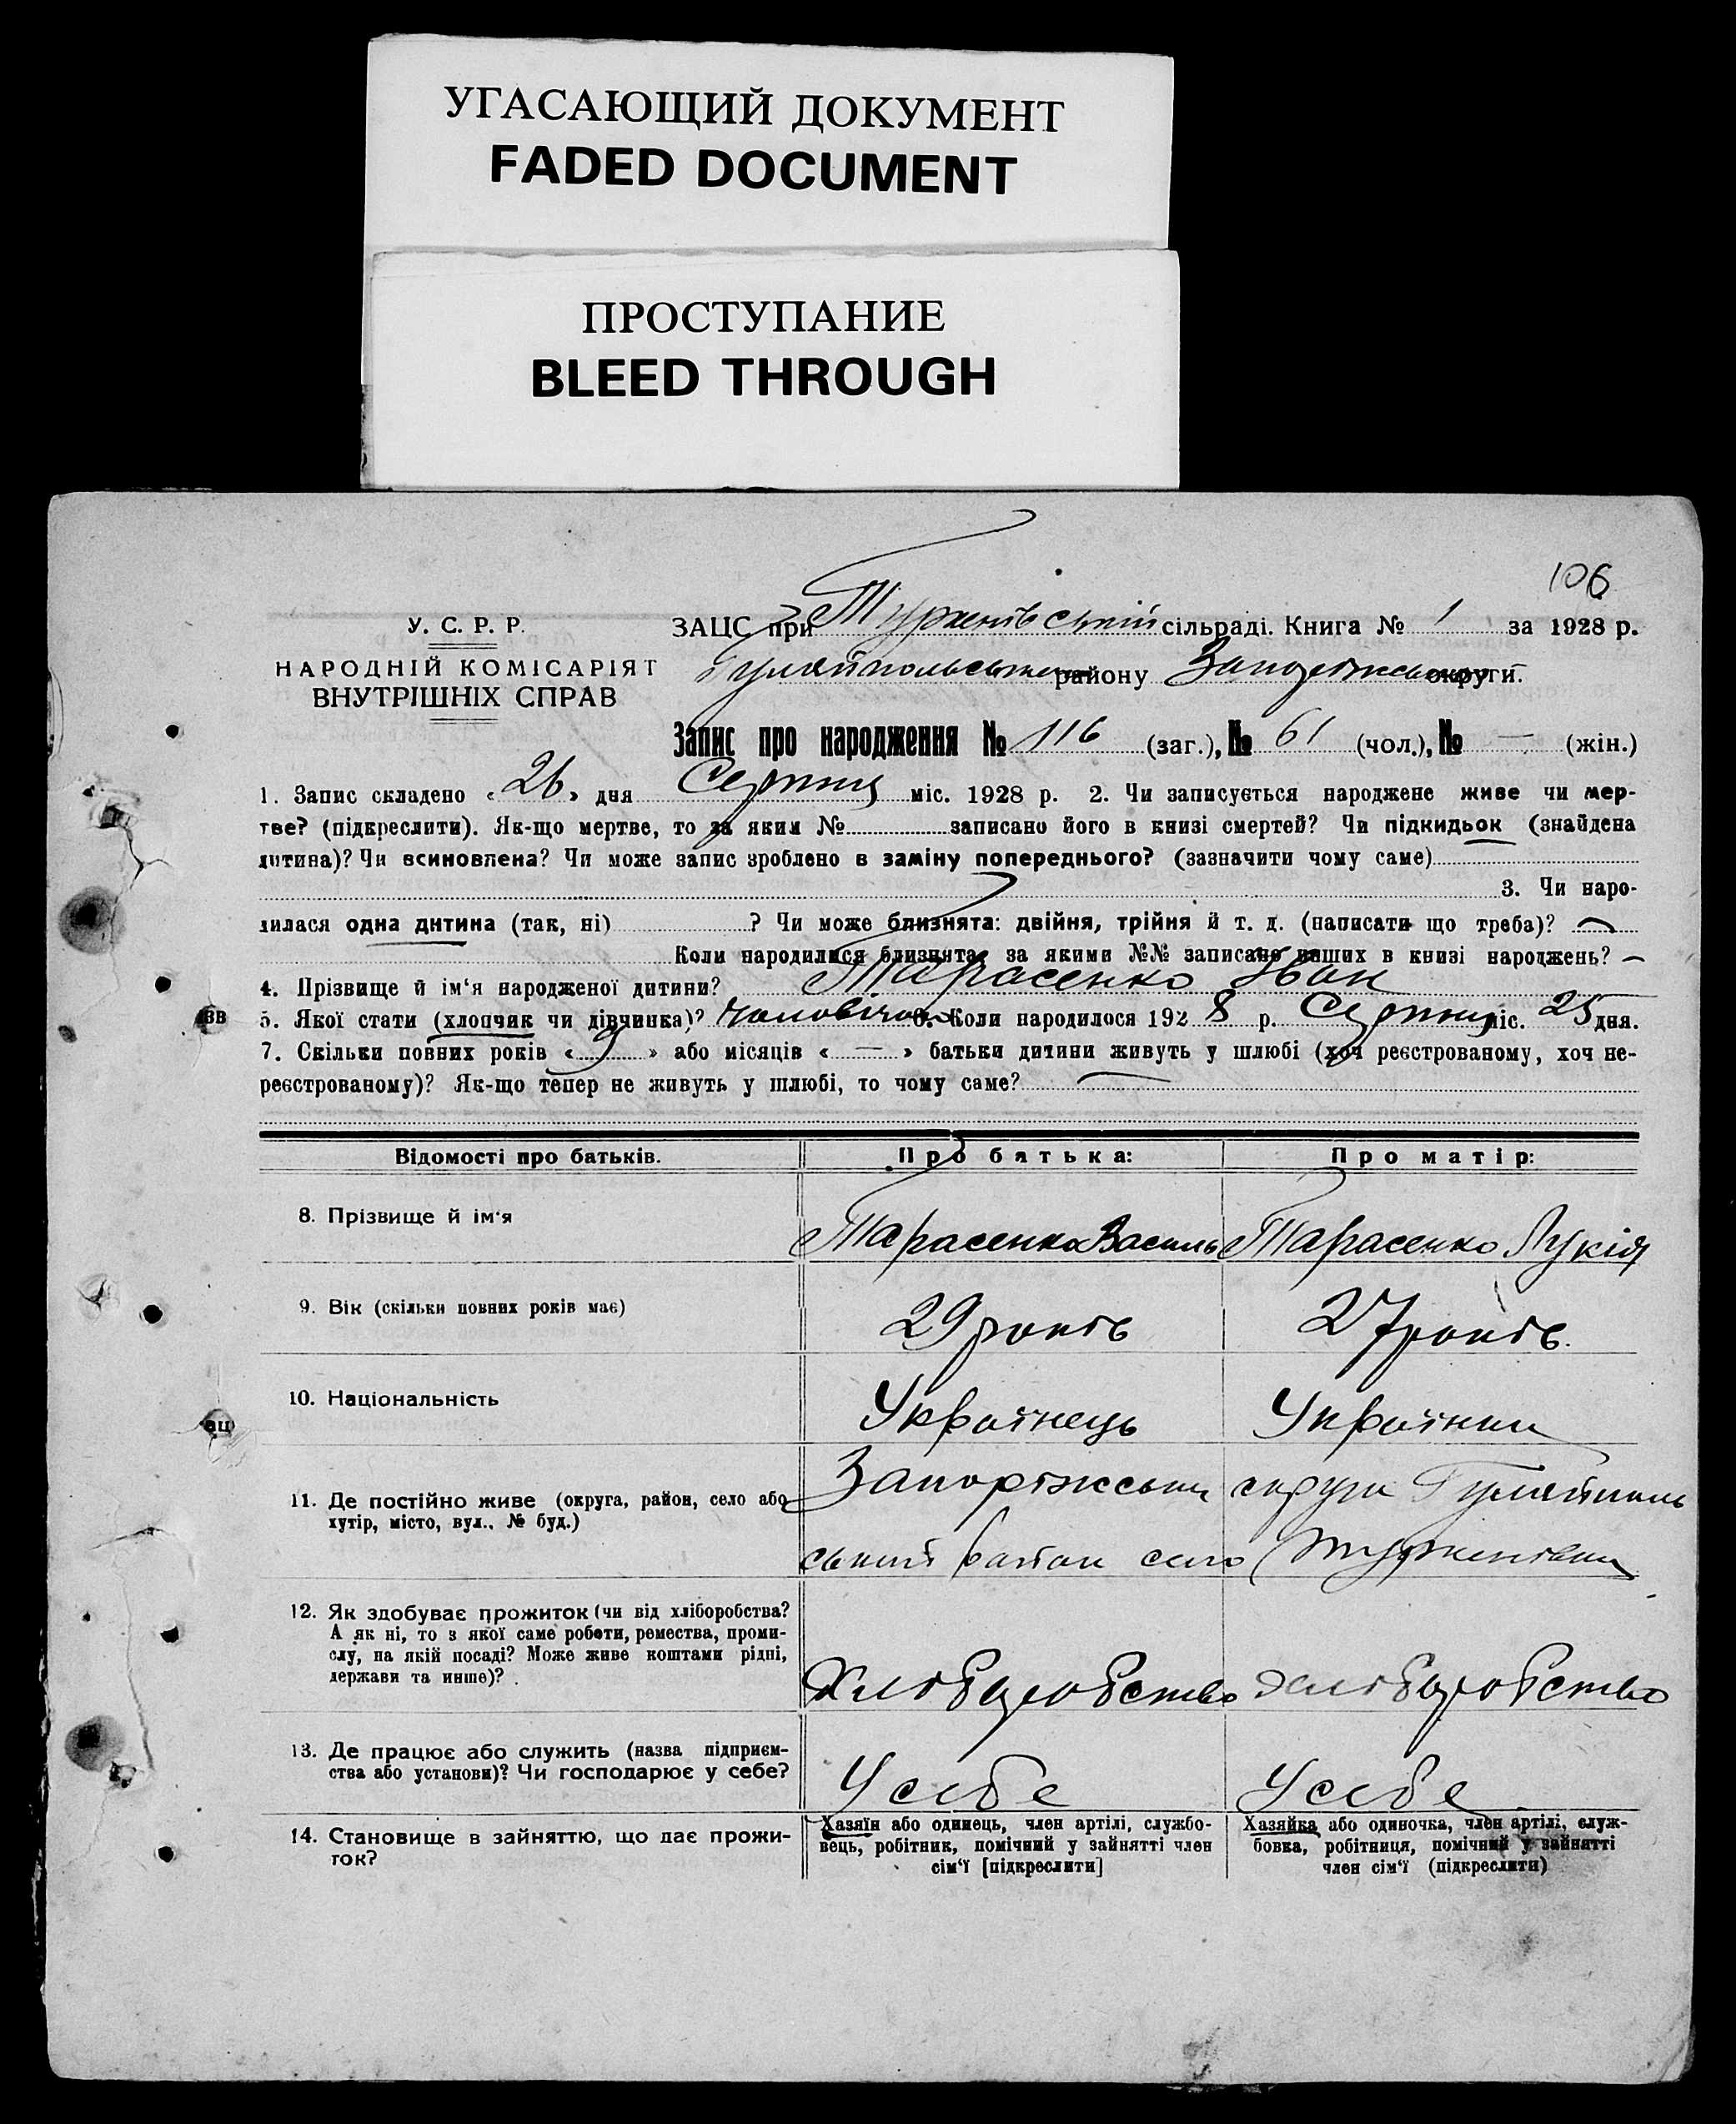 УГАСАЮЩИЙ ДОКУМЕНТ
FADED DOCUMENT
ПРОСТУПАНИЕ
BLEED THROUGH
106
У. С. Р. Р.
НАРОДНІЙ КОМІСАРІЯТ
ВНУТРІШНІХ СПРАВ
ЗАЦС при Туркенівській сільраді. Книга № 1 за 1928 р.
Гуляйпольського району Запоріжської округи.
Запис про народження № 116 (заг.), № 61 (чол.), № — (жін.)
1. Запис складено « 26 » дня Серпня міс. 1928 р. 2. Чи записується народжене живе чи мер-
тве? (підкреслити). Як-що мертве, то за яким № записано його в книзі смертей? Чи підкидьок (знайдена
дитина)? Чи всиновлена? Чи може запис зроблено в заміну попереднього? (зазначити чому саме)
3. Чи наро-
дилася одна дитина (так, ні) ? Чи може близнята: двійня, трійня й т. д. (написати що треба)? —
Коли народилися близнята, за якими №№ записано инших в книзі народжень? —
4. Прізвище й ім‘я народженої дитини? Тарасенко Іван
5. Якої стати (хлопчик чи дівчинка)? чоловічої 6. Коли народилося 1928 р. Серпня міс. 25 дня.
7. Скільки повних років « 9 » або місяців « — » батьки дитини живуть у шлюбі (хоч реєстрованому, хоч не-
реєстрованому)? Як-що тепер не живуть у шлюбі, то чому саме? —
Відомості про батьків. Про батька: Про матір:
8. Прізвище й ім‘я Тарасенко Василь Тарасенко Лукія
9. Вік (скільки повних років має) 29 років 27 років.
10. Національність Українець Українка
11. Де постійно живе (округа, район, село або Запоріжська округа Гуляйполь
хутір, місто, вул., № буд.)
ський район село Туркенівка
12. Як здобуває прожиток (чи від хліборобства?
А як ні, то з якої саме роботи, ремества, проми-
слу, на якій посаді? Може живе коштами рідні,
держави та инше)? Хліборобство хліборобство
13. Де працює або служить (назва підприєм-
ства або установи)? Чи господарює у себе? У себе У себе
14. Становище в зайняттю, що дає прожи-
ток?
Хазяїн або одинець, член артілі, службо-
вець, робітник, помічний у зайнятті член
сім‘ї [підкреслити]
Хазяйка або одиночка, член артілі, служ-
бовка, робітниця, помічний у зайнятті
член сім‘ї (підкреслити)